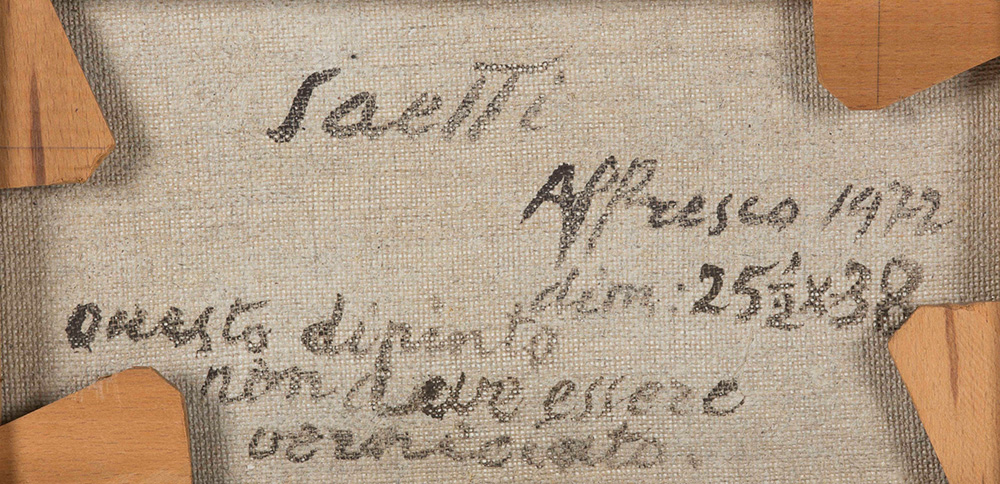 Saetti
Affresco 1972
dim: 25½x38
Questo dipinto
non deve essere
verniciato.